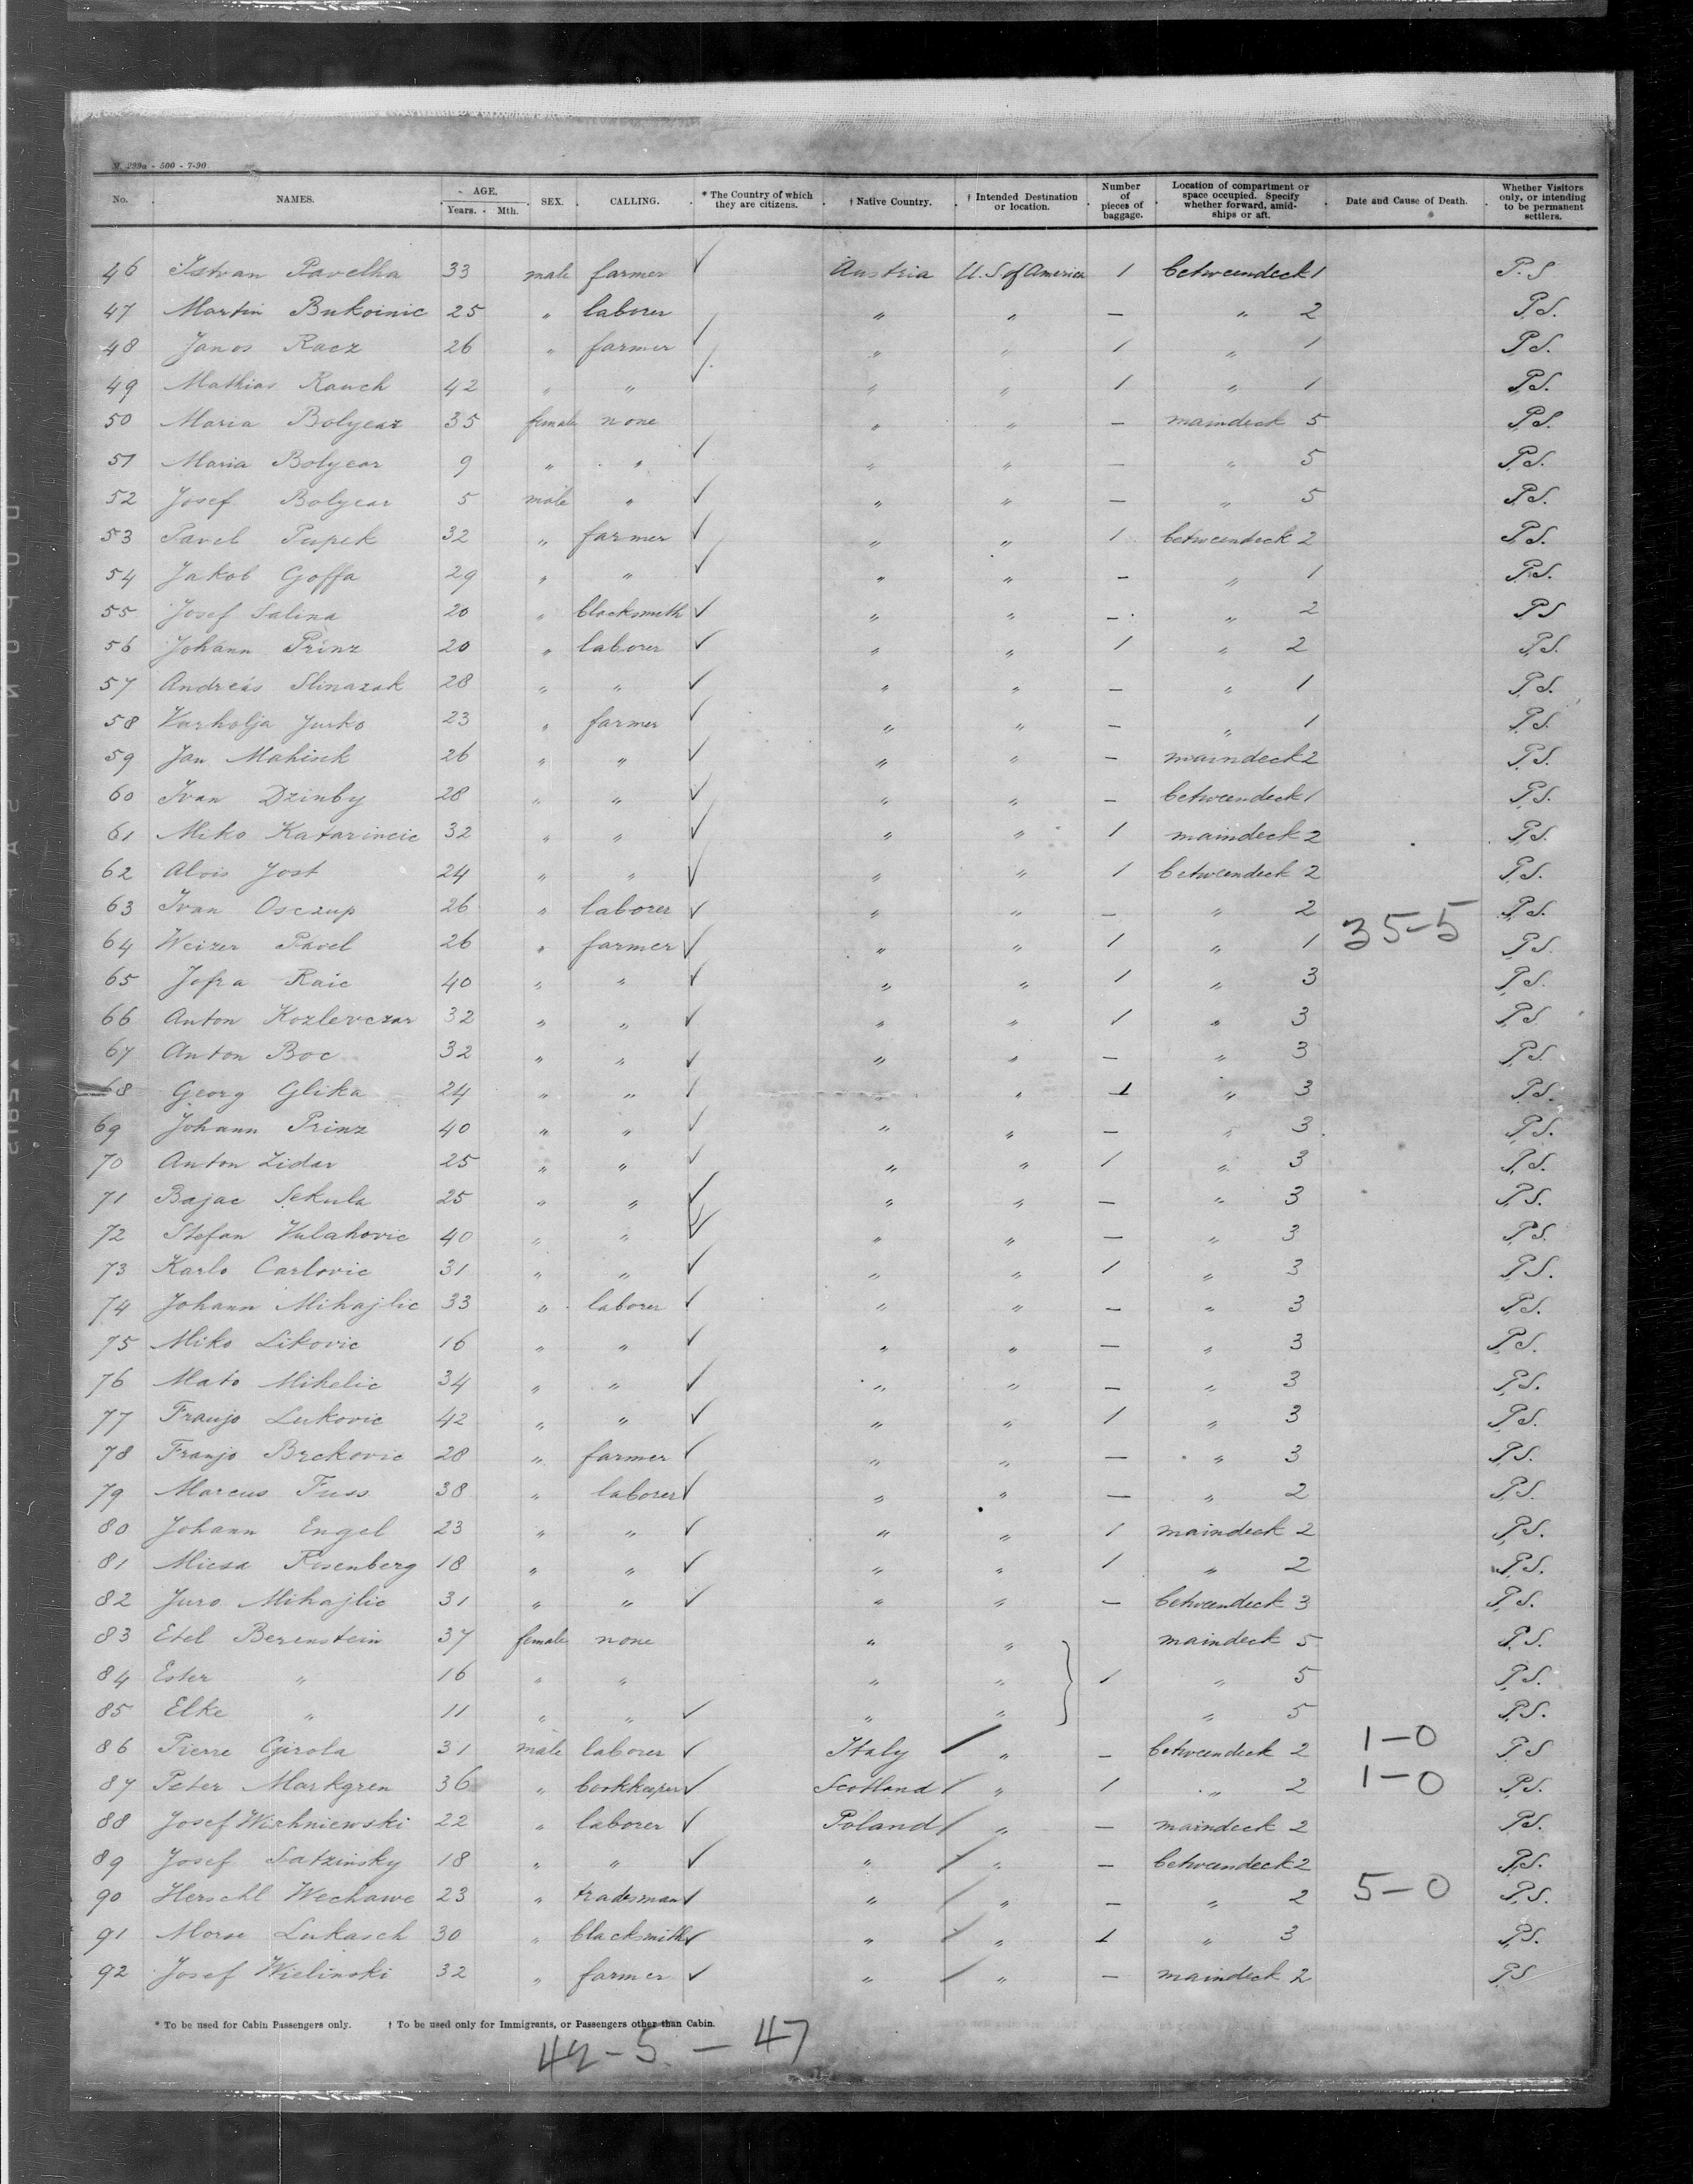 M. 299a - 500 - 7-90
No. NAMES. AGE. Years. Mth. SEX. CALLING. * The Country of which they are citizens. † Native Country. † Intended Destination or location. Number of pieces of baggage. Location of compartment or space occupied. Specify whether forward, amidships or aft. Date and Cause of Death. Whether Visitors only, or intending to be permanent settlers.
46 Istvan Pavelka 33 male farmer ✓ Austria U.S of America 1 betweendeck 1 P.S
47 Martin Bukoinic 25 " laborer " " — " 2 P.S.
48 Janos Racz 26 " farmer ✓ " " 1 " 1 P.S.
49 Mathias Rauch 42 " " ✓ " " 1 " 1 P.S.
50 Maria Bolyear 35 female none " " — maindeck 5 P.S.
51 Maria Bolyear 9 " " ✓ " " — " 5 P.S.
52 Josef Bolyear 5 male " ✓ " " — " 5 P.S.
53 Pavel Pupek 32 " farmer ✓ " " 1 betweendeck 2 P.S.
54 Jakob Goffa 29 " " ✓ " " — " 1 P.S.
55 Josef Salina 20 " blacksmith ✓ " " — " 2 P.S
56 Johann Prinz 20 " laborer ✓ " " 1 " 2 P.S.
57 Andreás Slinazak 28 " " ✓ " " — " 1 P.S.
58 Varholja Jurko 23 " farmer ✓ " " — " 1 P.S.
59 Jan Mahisek 26 " " ✓ " " — maindeck 2 P.S.
60 Ivan Dzinby 28 " " ✓ " " — betweendeck 1 P.S.
61 Miko Katarincic 32 " " ✓ " " 1 maindeck 2 P.S.
62 Alois Jost 24 " " ✓ " " 1 betweendeck 2 P.S.
63 Ivan Osczup 26 " laborer ✓ " " — " 2 P.S.
64 Weizer Pavel 26 " farmer ✓ " " 1 " 1 35-5 P.S.
65 Jofra Raic 40 " " ✓ " " 1 " 3 P.S.
66 Anton Kozlevczar 32 " " ✓ " " 1 " 3 P.S
67 Anton Boc 32 " " ✓ " " — " 3 P.S.
68 Georg Glika 24 " " ✓ " " 1 " 3 P.S.
69 Johann Prinz 40 " " ✓ " " — " 3 P.S.
70 Anton Zidar 25 " " ✓ " " 1 " 3 P.S.
71 Bajac Sekula 25 " " ✓ " " — " 3 P.S.
72 Stefan Vulahovic 40 " " ✓ " " — " 3 P.S.
73 Karlo Carlovic 31 " " ✓ " " 1 " 3 P.S.
74 Johann Mihajlic 33 " laborer ✓ " " — " 3 P.S.
75 Miko Likovic 16 " " ✓ " " — " 3 P.S.
76 Mato Mihelic 34 " " ✓ " " — " 3 P.S.
77 Franjo Lukovic 42 " " ✓ " " 1 " 3 P.S.
78 Franjo Brckovic 28 " farmer ✓ " " — " 3 P.S.
79 Marcus Fuss 38 " laborer ✓ " " — " 2 P.S.
80 Johann Engel 23 " " ✓ " " 1 maindeck 2 P.S.
81 Micsa Rosenberg 18 " " ✓ " " 1 " 2 P.S.
82 Juro Mihajlic 31 " " ✓ " " — betweendeck 3 P.S.
83 Etel Berenstein 37 female none " " maindeck 5 P.S.
84 Ester " 16 " " " " 1 " 5 P.S.
85 Elke " 11 " " ✓ " " " 5 P.S.
86 Pierre Girola 31 male laborer ✓ Italy " — betweendeck 2 1-0 P.S
87 Peter Markgren 36 " bookkeeper ✓ Scotland " 1 " 2 1-0 P.S.
88 Josef Wischniewski 22 " laborer ✓ Poland " — maindeck 2 P.S.
89 Josef Satzinsky 18 " " ✓ " " — betweendeck 2 P.S.
90 Herschl Wechawe 23 " tradesman ✓ " " — " 2 5-0 P.S.
91 Morse Lukasch 30 " blacksmith ✓ " " 1 " 3 P.S.
92 Josef Wielinski 32 " farmer ✓ " " — maindeck 2 P.S
* To be used for Cabin Passengers only. † To be used only for Immigrants, or Passengers other than Cabin.
42-5-47